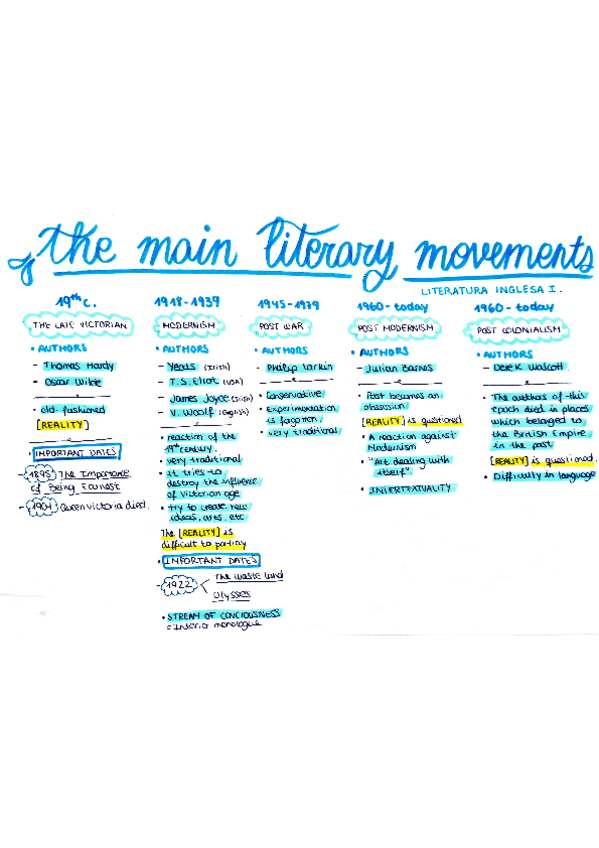 the main literary movements
LITERATURA INGLESA I.
19th c.
THE LATE VICTORIAN
• AUTHORS
- Thomas Hardy
- Oscar Wilde
• old-fashioned
[REALITY]
• IMPORTANT DATES
- 1895 The Importance
of Being Earnest
- 1901 Queen Victoria died.
1918-1939
MODERNISM
• AUTHORS
- Yeats (Irish)
- T.S. Eliot (USA)
- James Joyce (Irish)
- V. Woolf (English)
• reaction of the
19th century.
• very traditional
• it tries to
destroy the influence
of Victorian age
• try to create new
ideas, arts, etc
The [REALITY] is
difficult to portray
• IMPORTANT DATES
- 1922
The Waste Land
Ulysses
• STREAM OF CONCIOUSNESS
= Interior monologue
1945-1979
POST WAR
• AUTHORS
- Philip Larkin
• Conservative
• Experimentation
is forgotten
• very traditional
1960-today
POST MODERNISM
• AUTHORS
- Julian Barnes
• Past becomes an
obsession
[REALITY] is questioned
• A reaction against
Modernism
• "Art dealing with
itself"
• INTERTEXTUALITY
1960-today
POST COLONIALISM
• AUTHORS
- Derek Walcott
• The authors of this
epoch died in places
which belonged to
the British Empire
in the past
[REALITY] is questioned.
• Difficulty in language